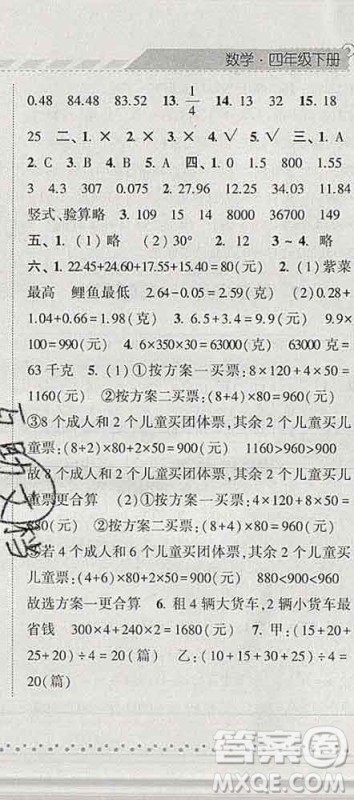 数学·四年级下册
0.48 84.48 83.52 13. 1/4 14. 13 32 15. 18
25 二、1. × 2. × 3. × 4. √ 5. √ 三、1. A
2. C 3. B 4. B 5. A 四、1. 0 1.5 800 1.55
3 4.3 307 0.075 2. 27.98 106.88 14.83
竖式、验算略 3. 109 15 14 8400 36000 149
五、1. (1) 略 (2) 30° 2. 12 3 ~ 4. 略
六、1. 22.45+24.60+17.55+15.40=80(元) 2. (1) 紫菜
最高 鲤鱼最低 2.64-0.05=2.59(克) (2) 0.28+
1.04+0.66=1.98(克) 3. 6.5+3.4=9.9(元) 9.9×
100=990(元) 4. 6×350×30=63000(克) 63000克=
63千克 5. (1) ①按方案一买票: 8×120+4×50=
1160(元) ②按方案二买票: (8+4)×80=960(元)
③8个成人和2个儿童买团体票, 其余2个儿童买儿
童票: (8+2)×80+2×50=900(元) 1160>960>900
故8个成人和2个儿童买团体票, 其余2个儿童买儿
童票更合算 (2) ①按方案一买票: 4×120+8×50=
880(元) ②按方案二买票: (4+8)×80=960(元)
③若4个成人和6个儿童买团体票, 其余2个儿童买
儿童票: (4+6)×80+2×50=900(元) 880<900<960
故选方案一更合算 6. 租4辆大货车, 2辆小货车最
省钱 300×4+240×2=1680(元) 7. 甲: (15+20+
25+20)÷4=20(篇) 乙: (10+15+25+30)÷4=
20(篇)
答案圈
MXQE.COM